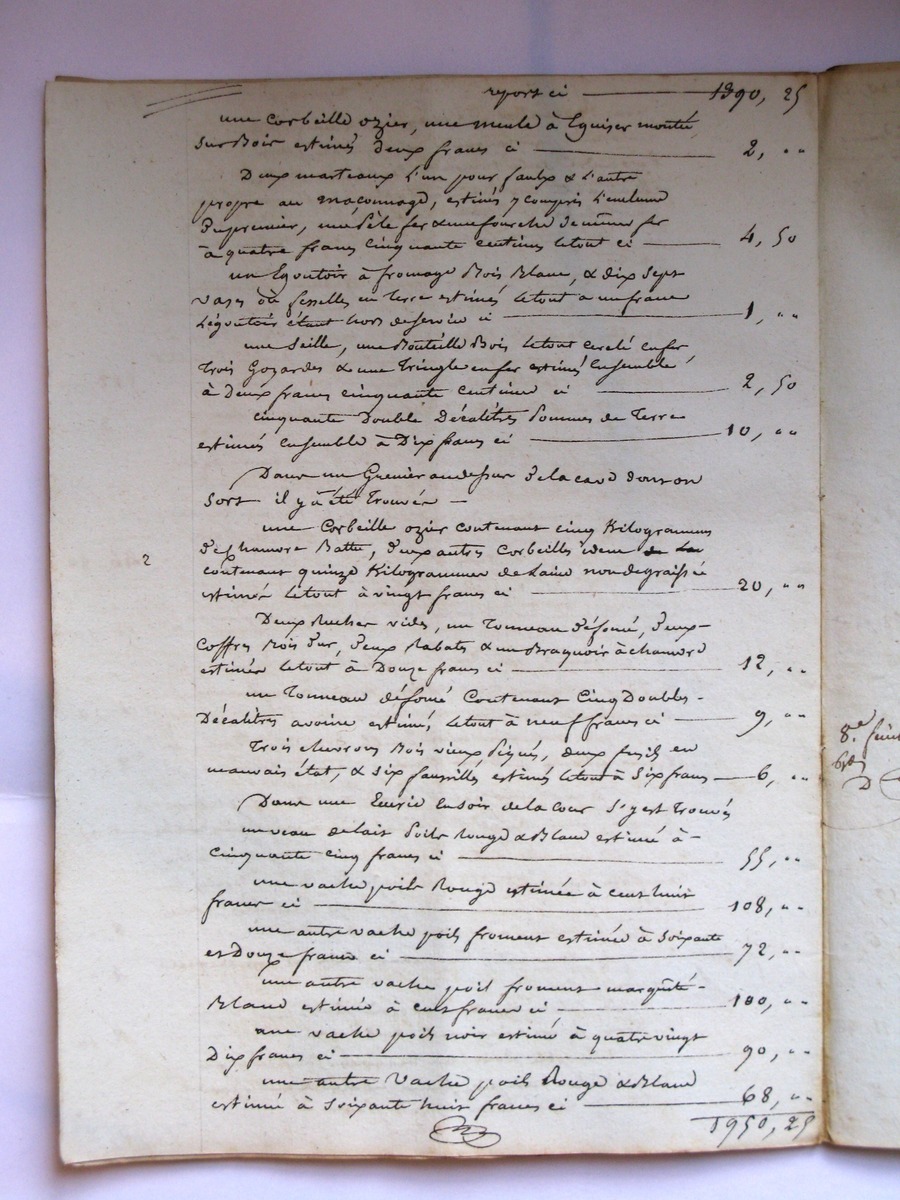 report ci 1390, 25
une Corbeille ozier, une meule à Eguiser montée
sur Bois estimés deux francs ci 2, "
Deux marteaux l'un pour faulx & l'autre
propre au maçonnage, estimés y compris l'enclume
du premier, une pèle fer & une fourche de même fer
à quatre francs cinquante centimes letout ci 4, 50
un Egoutoir à fromage Bois Blanc, & dix sept
vases ou fesselles en terre estimés letout a un franc
Légoutoir étant hors deservice ci 1, "
une Seille, une Bouteille Bois letout cerclé en fer
Trois Gozardes & une Tringle en fer estimés Ensemble
à deux francs cinquante centimes ci 2, 50
cinquante Double Décalitres Pommes de Terre
estimés ensemble à Dix francs ci 10, "
Dans un Grenier audessus de la cave d'où on
sort il y à été Trouvée
une Corbeille ozier contenant cinq Kilogrammes
de chanvre Battu, deux autres Corbeilles idem
contenant quinze Kilogrammes de Laine non degraissée
estimés letout à vingt francs ci 20, "
2
Deux Rucher vides, un Tonneau défoncé, deux
Coffres Bois dur, deux Rabats & un Braquoir à chanvre
estimés letout à Douze francs ci 12, "
un Tonneau défoncé Contenant Cinq Doubles
Décalitres avoine estimés letout à neuf francs ci 9, "
Trois chevrons Bois vieux piqués, deux fusils en
mauvais état, & six faucilles estimés letout à Six francs 6, "
Dans une Ecurie En soir de la Cour s'y est Trouvés
un veau de lait Poils Rouge & Blanc estimé à
cinquante cinq francs ci 55, "
une vache poils Rouge estimée à cent huit
francs ci 108, "
une autre vache poils froment estimée à Soixante
et Douze francs ci 72, "
une autre vache poil froment marqueté
Blanc estimée à cent francs ci 100, "
une vache poils noir estimée à quatre vingt
Dix francs ci 90, "
une autre Vache poils Rouge & Blanc
estimée à Soixante huit francs ci 68, "
1950, 25
8.e
D